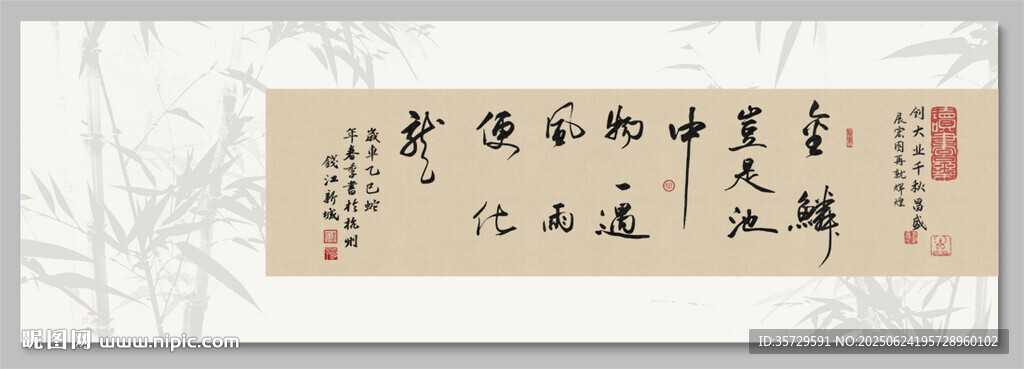 创大业千秋昌盛
展宏图再就辉煌
金鳞
豈是池
中
物一遇
風雨
便化
龍
歲車乙巳蛇
年春季書於杭州
錢江新城
昵图网 www.nipic.com
ID:35729591 NO:20250624195728960102